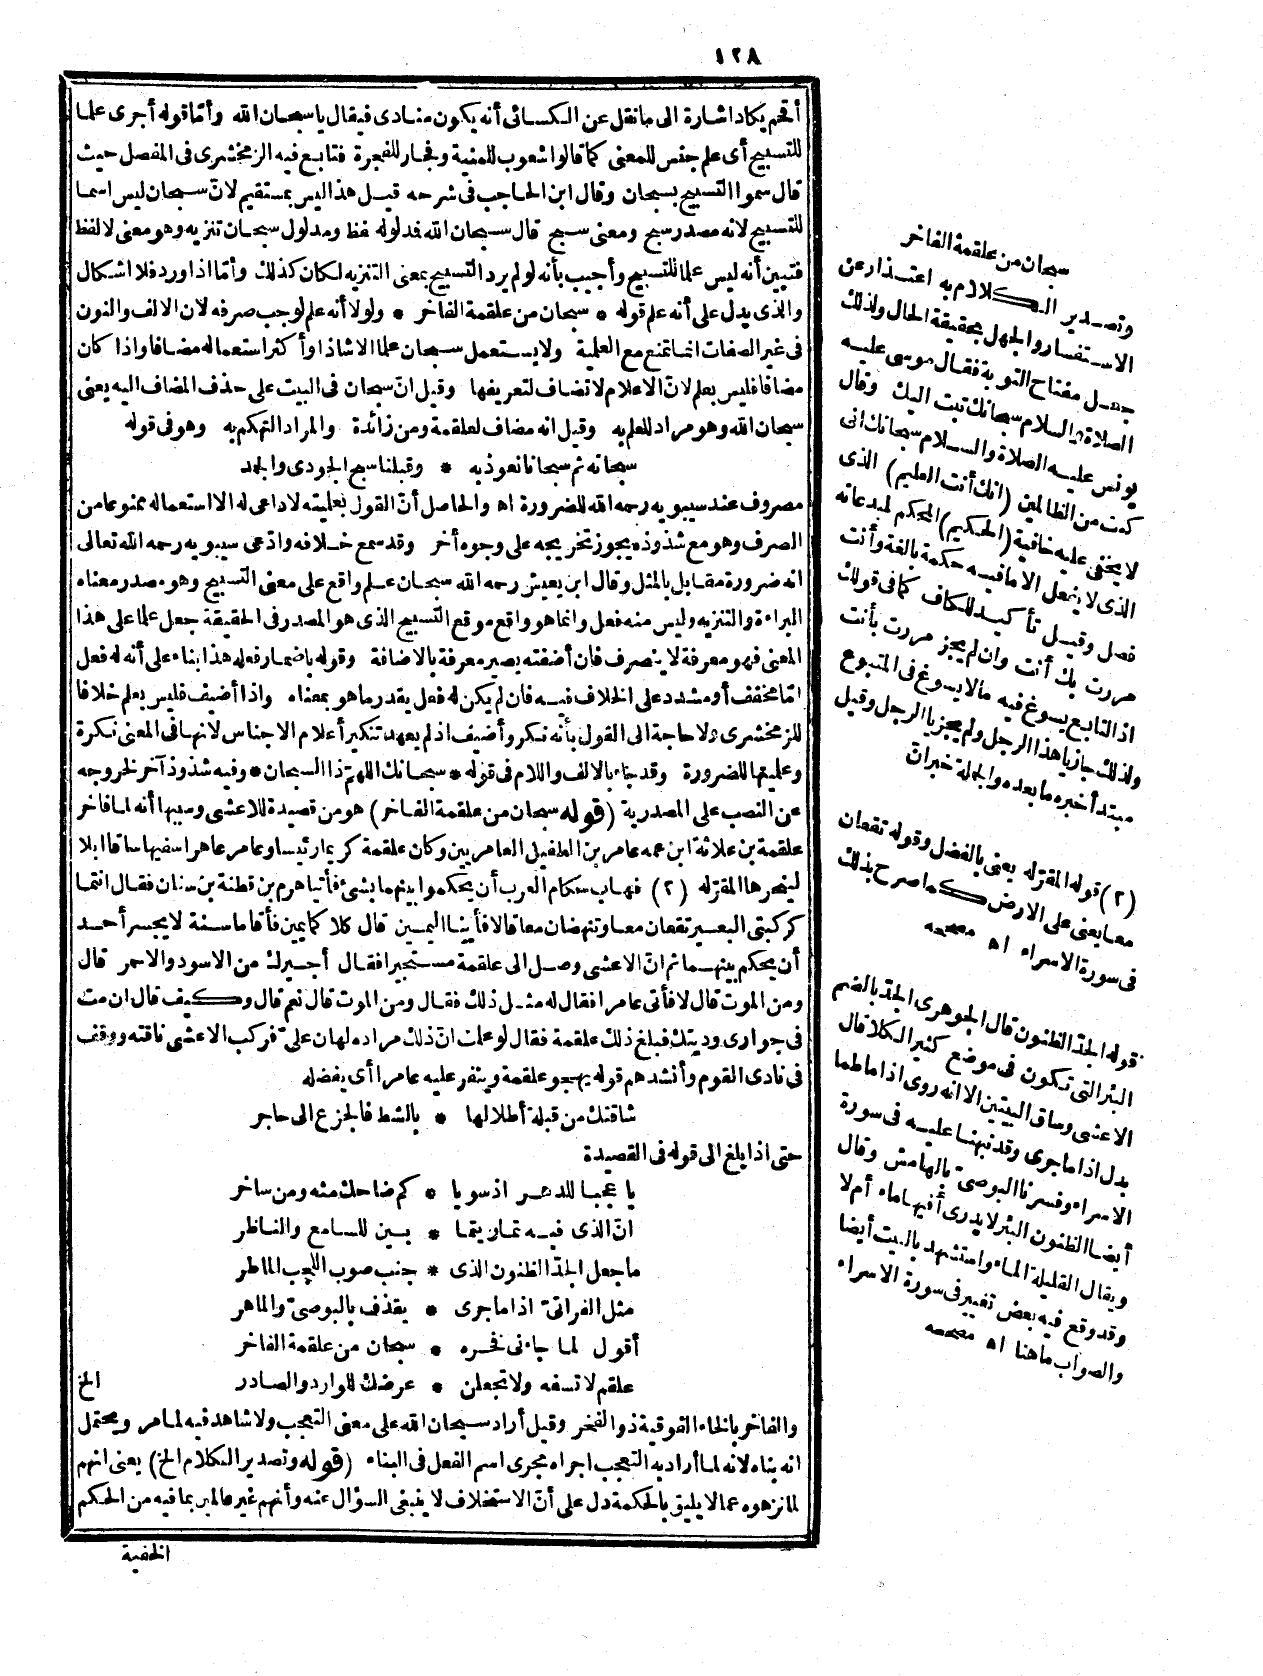 ١٢٨
أقحم يكاد اشارة الى ما نقل عن الكسائى أنه يكون منادى فيقال يا سبحان الله وأما قوله أجرى علما
للتسبيح أى علم جنس للمعنى كما قالوا شعوب للمنية وفجار للفجرة فتابع فيه الزمخشرى فى المفصل حيث
قال سموا التسبيح بسبحان وقال ابن الحاجب فى شرحه قيل هذا ليس بمستقيم لانّ سبحان ليس اسما
للتسبيح لانه مصدر سبح ومعنى سبح قال سبحان الله فدلوله لفظ ومدلول سبحان تنزيه وهو معنى لا لفظ
فتبين أنه ليس علما للتسبيح وأجيب بأنه لو لم يرد التسبيح بمعنى التنزيه لكان كذلك وأما اذا ورد فلا اشكال
والذى يدل على أنه علم قوله * سبحان من علقمة الفاخر * ولولا أنه علم لوجب صرفه لان الالف والنون
فى غير الصفات انما تمنع مع العلمية ولا يستعمل سبحان علما الا شاذا وأكثر استعماله مضافا واذا كان
مضافا فليس بعلم لانّ الاعلام لا تضاف لتعريفها وقيل انّ سبحان فى البيت على حذف المضاف اليه يعنى
سبحان الله وهو مراد للعلم به وقيل انه مضاف لعلقمة ومن زائدة والمراد التهكم به وهو فى قوله
سبحانه ثم سبحانا نعوذ به * وقبلنا سبح الجودى والجمد
مصروف عند سيبويه رحمه الله للضرورة اه والحاصل أنّ القول بعلميته لا داعى له الا استعماله ممنوعا من
الصرف وهو مع شذوذه يجوز تخريجه على وجوه أخر وقد سمع خلافه وادّعى سيبويه رحمه الله تعالى
انه ضرورة مقابل بالمثل وقال ابن يعيش رحمه الله سبحان علم واقع على معنى التسبيح وهو مصدر معناه
البراءة والتنزيه وليس منه فعل وانما هو واقع موقع التسبيح الذى هو المصدر فى الحقيقة جعل علما على هذا
المعنى فهو معرفة لا ينصرف فان أضفته يصير معرفة بالاضافة وقوله باضمار فعله هذا بناء على أنه له فعل
امّا مخفف أو مشدد على الخلاف فيه فان لم يكن له فعل يقدر ما هو بمعناه واذا أضيف فليس بعلم خلافا
للزمخشرى ولا حاجة الى القول بأنه نكر وأضيف اذ لم يعهد تنكير أعلام الاجناس لانها فى المعنى نكرة
وعلميتها للضرورة وقد جاء بالالف واللام فى قوله * سبحانك اللهمّ ذا السبحان * وفيه شذوذ آخر لخروجه
عن النصب على المصدرية (قوله سبحان من علقمة الفاخر) هو من قصيدة للاعشى وسببها أنه لما فاخر
علقمة بن علاثة ابن عمه عامر بن الطفيل العامريين وكان علقمة كريما رئيسا وعامر عاهرا سفيها ساقا ابلا
لينحرها المقرّله (٢) فهاب حكام العرب أن يحكموا بينهما بشئ فأتيا هرم بن قطنة بن سنان فقال انتما
كركبتى البعير تقعان معا وتنهضان معا قالا فأينا اليمين قال كلا كما يمين فأقاما سنة لا يجسر أحد
أن يحكم بينهما ثم انّ الاعشى وصل الى علقمة مستجيرا فقال أجيرك من الاسود والاحمر قال
ومن الموت قال لا فأتى عامرا فقال له مثل ذلك فقال ومن الموت قال نعم قال وكيف قال ان مت
فى جوارى وديتك فبلغ ذلك علقمة فقال لو علمت انّ ذلك مراده لهان علىّ فركب الاعشى ناقته ووقف
فى نادى القوم وأنشدهم قوله يهجو علقمة وينفر عليه عامرا أى يفضله
شاقتك من قبلة أطلالها * بالشط فالجزع الى حاجر
حتى اذا بلغ الى قوله فى القصيدة
يا عجبا للدهر اذ سويا * كم ضاحك منه ومن ساخر
انّ الذى فيه تماريتما * بين للسامع والناظر
ما جعل الجدّ الظنون الذى * جنب صوب اللجب الماطر
مثل الفراتىّ اذا ما جرى * يقذف بالبوصىّ والماهر
أقول لما جاءنى فخره * سبحان من علقمة الفاخر
علقم لا تسفه ولا تجعلن * عرضك للوارد والصادر الخ
والفاخر بالخاء الفوقية ذو الفخر وقيل أراد سبحان الله على معنى التعجب ولا شاهد فيه لما مر ويحتمل
انه بناه لانه لما أراد به التعجب اجراه مجرى اسم الفعل فى البناء (قوله وتصدير الكلام الخ) يعنى انهم
لما نزهوه عما لا يليق بالحكمة دل على أنّ الاستخلاف لا ينبغى السؤال عنه وأنهم غير عالمين بما فيه من الحكم
الخفية
سبحان من علقمة الفاخر
وتصدير الكلام به اعتذار عن
الاستفسار والجهل بحقيقة الحال ولذلك
جعل مفتاح التوبة فقال موسى عليه
الصلاة والسلام سبحانك تبت اليك وقال
يونس عليه الصلاة والسلام سبحانك انى
كنت من الظالمين (انك أنت العليم) الذى
لا يخفى عليه خافية (الحكيم) المحكم لمبدعاته
الذى لا يفعل الا ما فيه حكمة بالغة وأنت
فصل وقيل تأكيد للكاف كما فى قولك
مررت بك أنت وان لم يجز مررت بأنت
اذ التابع يسوغ فيه ما لا يسوغ فى المتبوع
ولذلك جاز يا هذا الرجل ولم يجز يا الرجل وقيل
مبتدأ خبره ما بعده والجملة خبر انّ
(٢) قوله المقرّله يعنى بالفضل وقوله تقعان
معا يعنى على الارض كما صرح بذلك
فى سورة الاسراء اه مصححه
قوله الجدّ الظنون قال الجوهرى الجدّ بالضم
البئر التى تكون فى موضع كثير الكلا قال
الاعشى وساق البيتين الا انه روى اذا ما طما
بدل اذا ما جرى وقد نبهنا عليه فى سورة
الاسراء وفسرنا البوصىّ بالهامش وقال
أيضا الظنون البئر لا يدرى أفيها ماء أم لا
ويقال القليلة الماء واستشهد بالبيت أيضا
وقد وقع فيه بعض تغيير فى سورة الاسراء
والصواب ما هنا اه مصححه